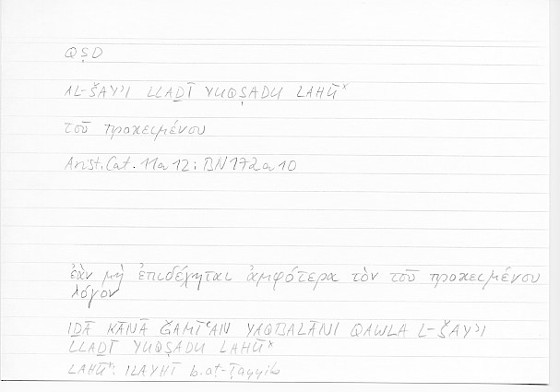 QṢD
AL-ŠAYʾI LLAḎĪ YUQṢADU LAHŪˣ
τοῦ προκειμένου
Arist. Cat. 11a12: BN172a10
ἐὰν μὴ ἐπιδέχηται ἀμφότερα τὸν τοῦ προκειμένου
λόγον
IḎĀ KĀNĀ ǦAMĪʿAN YAQBALĀNI QAWLA L-ŠAYʾI
LLAḎĪ YUQṢADU LAHŪˣ
LAHŪˣ: ILAYHI b. aṭ-Ṭayyib